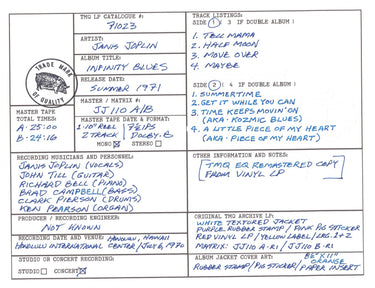 TMG LP CATALOGUE #:
71023
ARTIST:
JANIS JOPLIN
ALBUM TITLE:
INFINITY BLUES
RELEASE DATE:
SUMMER 1971
MASTER / MATRIX #:
JJ 110 A/B
TRADE MARK
OF QUALITY
MASTER TAPE
TOTAL TIMES:
A: 25:00
B: 24:16
MASTER TAPE DATE & FORMAT:
1-10" REEL
7½ IPS
2 TRACK
DOLBY-B
MONO STEREO
TRACK LISTINGS:
SIDE 1 3 IF DOUBLE ALBUM :
1. TELL MAMA
2. HALF MOON
3. MOVE OVER
4. MAYBE
SIDE 2 4 IF DOUBLE ALBUM :
1. SUMMERTIME
2. GET IT WHILE YOU CAN
3. TIME KEEPS MOVIN' ON
(AKA: KOZMIC BLUES)
4. A LITTLE PIECE OF MY HEART
(AKA: PIECE OF MY HEART)
RECORDING MUSICIANS AND PERSONNEL:
JANIS JOPLIN (VOCALS)
JOHN TILL (GUITAR)
RICHARD BELL (PIANO)
BRAD CAMPBELL (BASS)
CLARK PIERSON (DRUMS)
KEN PEARSON (ORGAN)
OTHER INFORMATION AND NOTES:
TMQ EQ REMASTERED COPY
FROM VINYL LP
PRODUCER / RECORDING ENGINEER:
NOT KNOWN
RECORDING DATE AND VENUE: HONOLULU, HAWAII
HONOLULU INTERNATIONAL CENTER / JULY 6, 1970
STUDIO OR CONCERT RECORDING:
STUDIO CONCERT
ORIGINAL TMG ARCHIVE LP:
WHITE TEXTURED JACKET
PURPLE RUBBER STAMP / PINK PIG STICKER
RED VINYL LP / YELLOW LABEL / LBS. 1+2
MATRIX: JJ110 A-R1 / JJ110 B-R1
ALBUM JACKET COVER ART:
ORANGE
RUBBER STAMP / PIG STICKER / PAPER INSERT